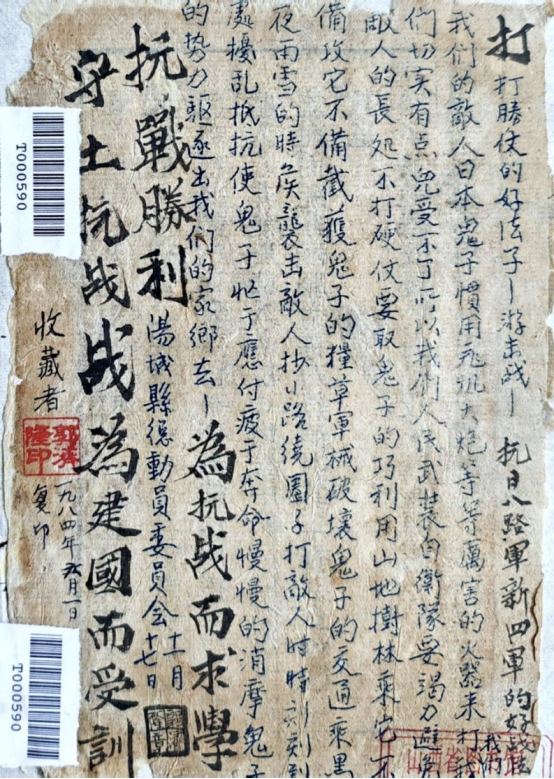 打
打勝仗的好法子—游击战— 抗日八路軍新四軍的好战
我們的敵人日本鬼子慣用飛机大炮等等厲害的火器来打我們
們切实有点兒受不了所以我們人民武装自衛隊要竭力避
敵人的長処不打硬仗要取鬼子的巧利用山地樹林乘它不
備攻它不備截獲鬼子的糧草軍械破壞鬼子的交通乘黑
夜雨雪的時候襲击敵人抄小路绕圈子打敵人时時刻刻到
處擾乱抵抗使鬼子忙于應付疲于奔命慢慢的消摩鬼子
的势力驱逐出我們的家鄉去—
為抗战而求學
抗戰勝利
湯城縣總動員委員会
十一月
十七日
守土抗战战為建國而受訓
收藏者
一九八四年五月一日
复印
T000590
T000590